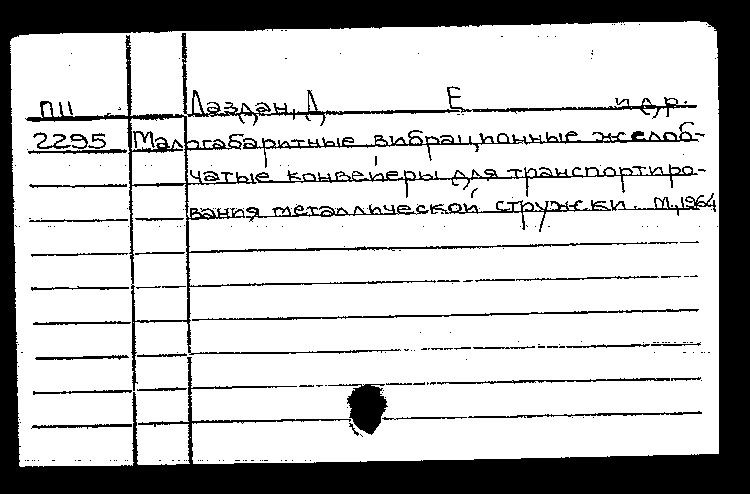 ПШ Лаздан, Д Е и др.
2295 Малогабаритные вибрационные желоб-
чатые конвейеры для транспортиро-
вания металлической стружки. М, 1964